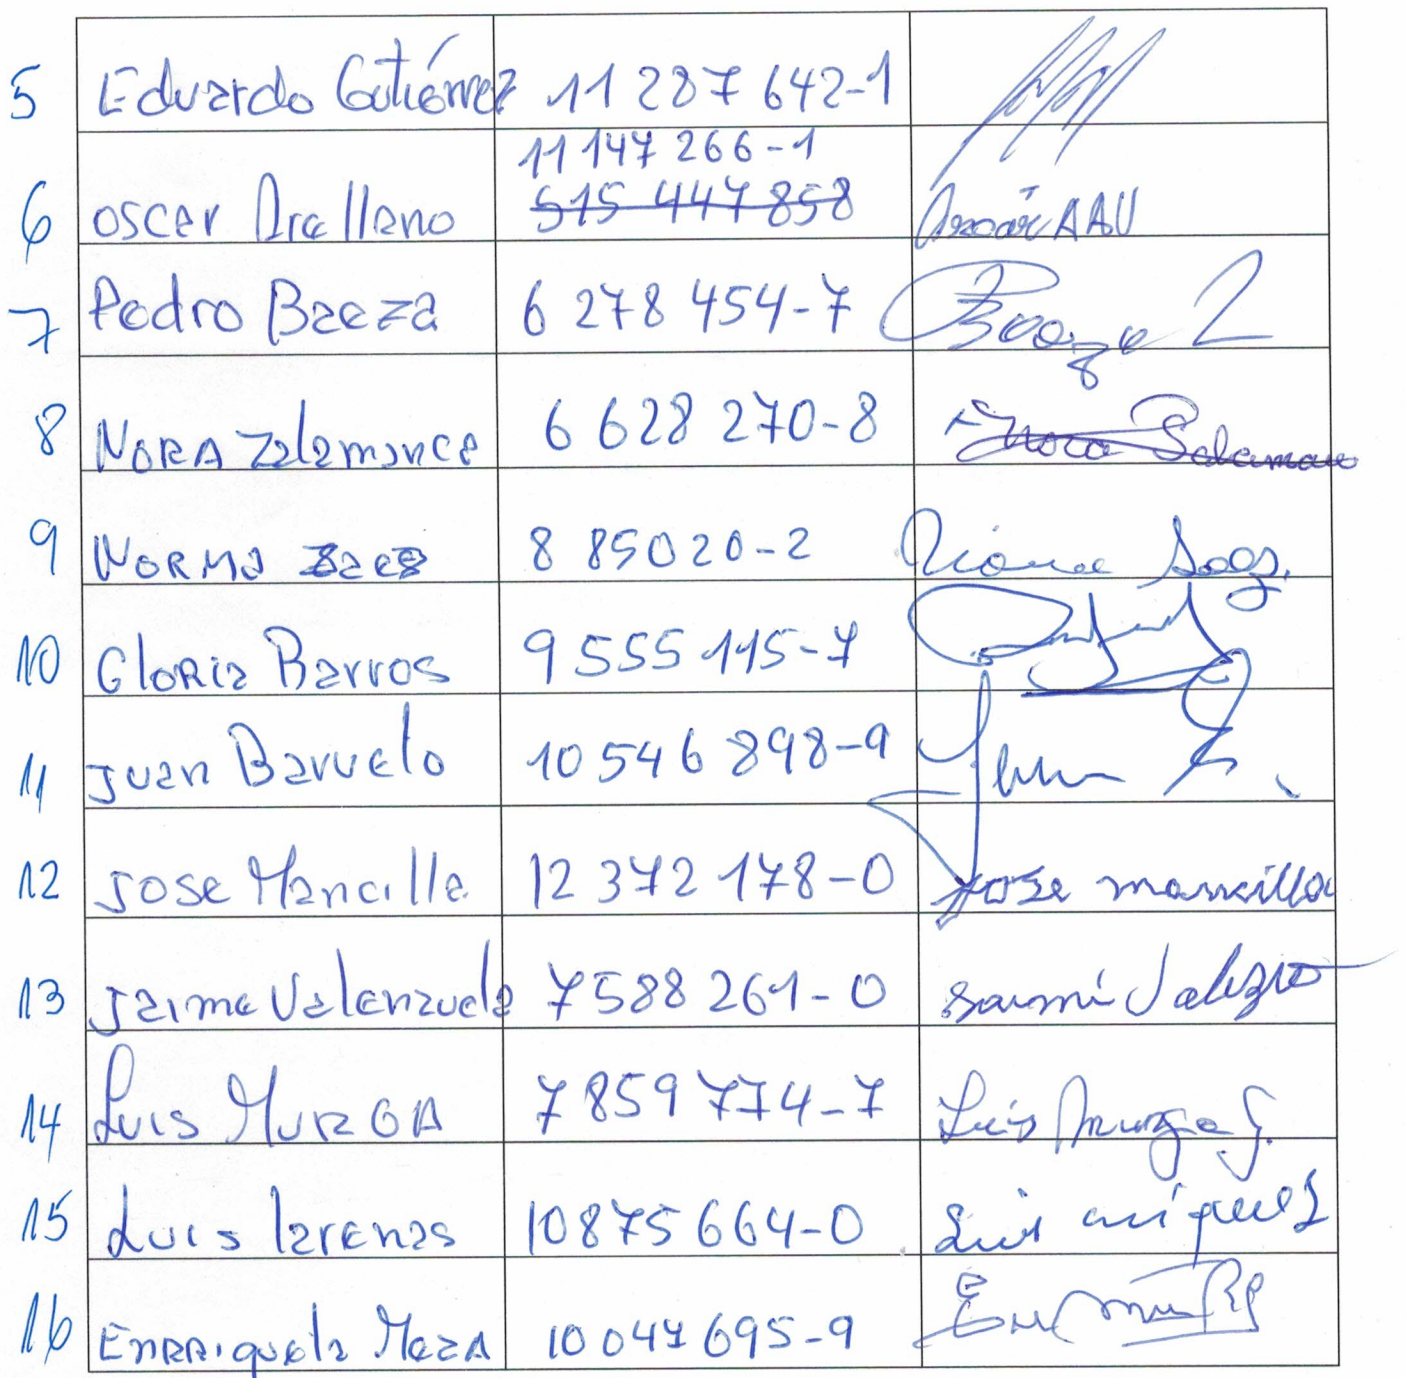 5 Eduardo Gutiérrez 11 287 642-1
11 147 266-1
6 Oscar Arellano 515 447 858 Oscar AAU
7 Pedro Baeza 6 278 454-7 Baeza
8 NORA Zalamanca 6 628 270-8 Nora Salaman
9 NORMA Saez 8 85020-2 Saez.
10 Gloria Barros 9 555 115-7
11 Juan Barvelo 10 546 898-9 Juan B.
12 Jose Mancilla 12 372 178-0 Jose mancilla
13 Jaime Valenzuela 7588 261-0
14 Luis MURGA 7 859 774-7 Luis Murga G.
15 Luis larenas 10875 664-0 Luis
16 ENRRiqueta MezA 10 047 695-9